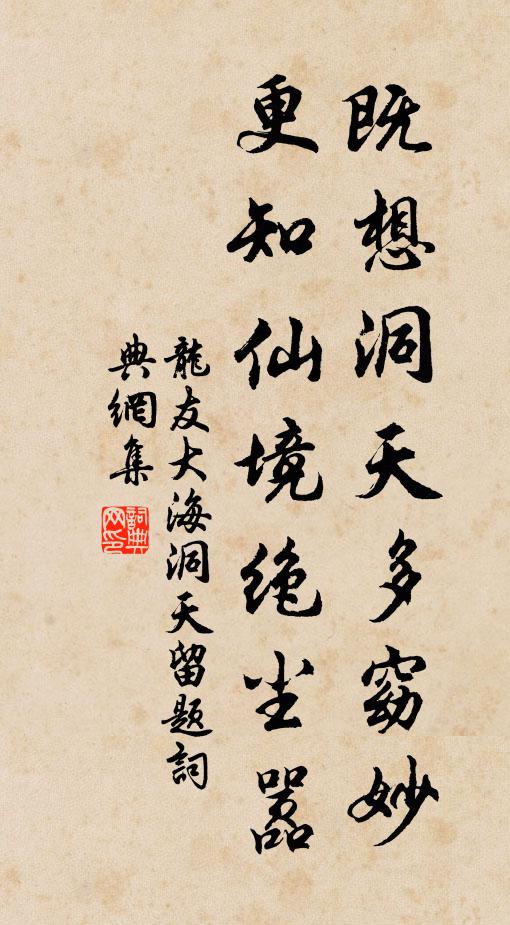 既想洞天多窈妙
更知仙境绝尘嚣
龍友大海洞天留题詞
典網集
詞典
网印